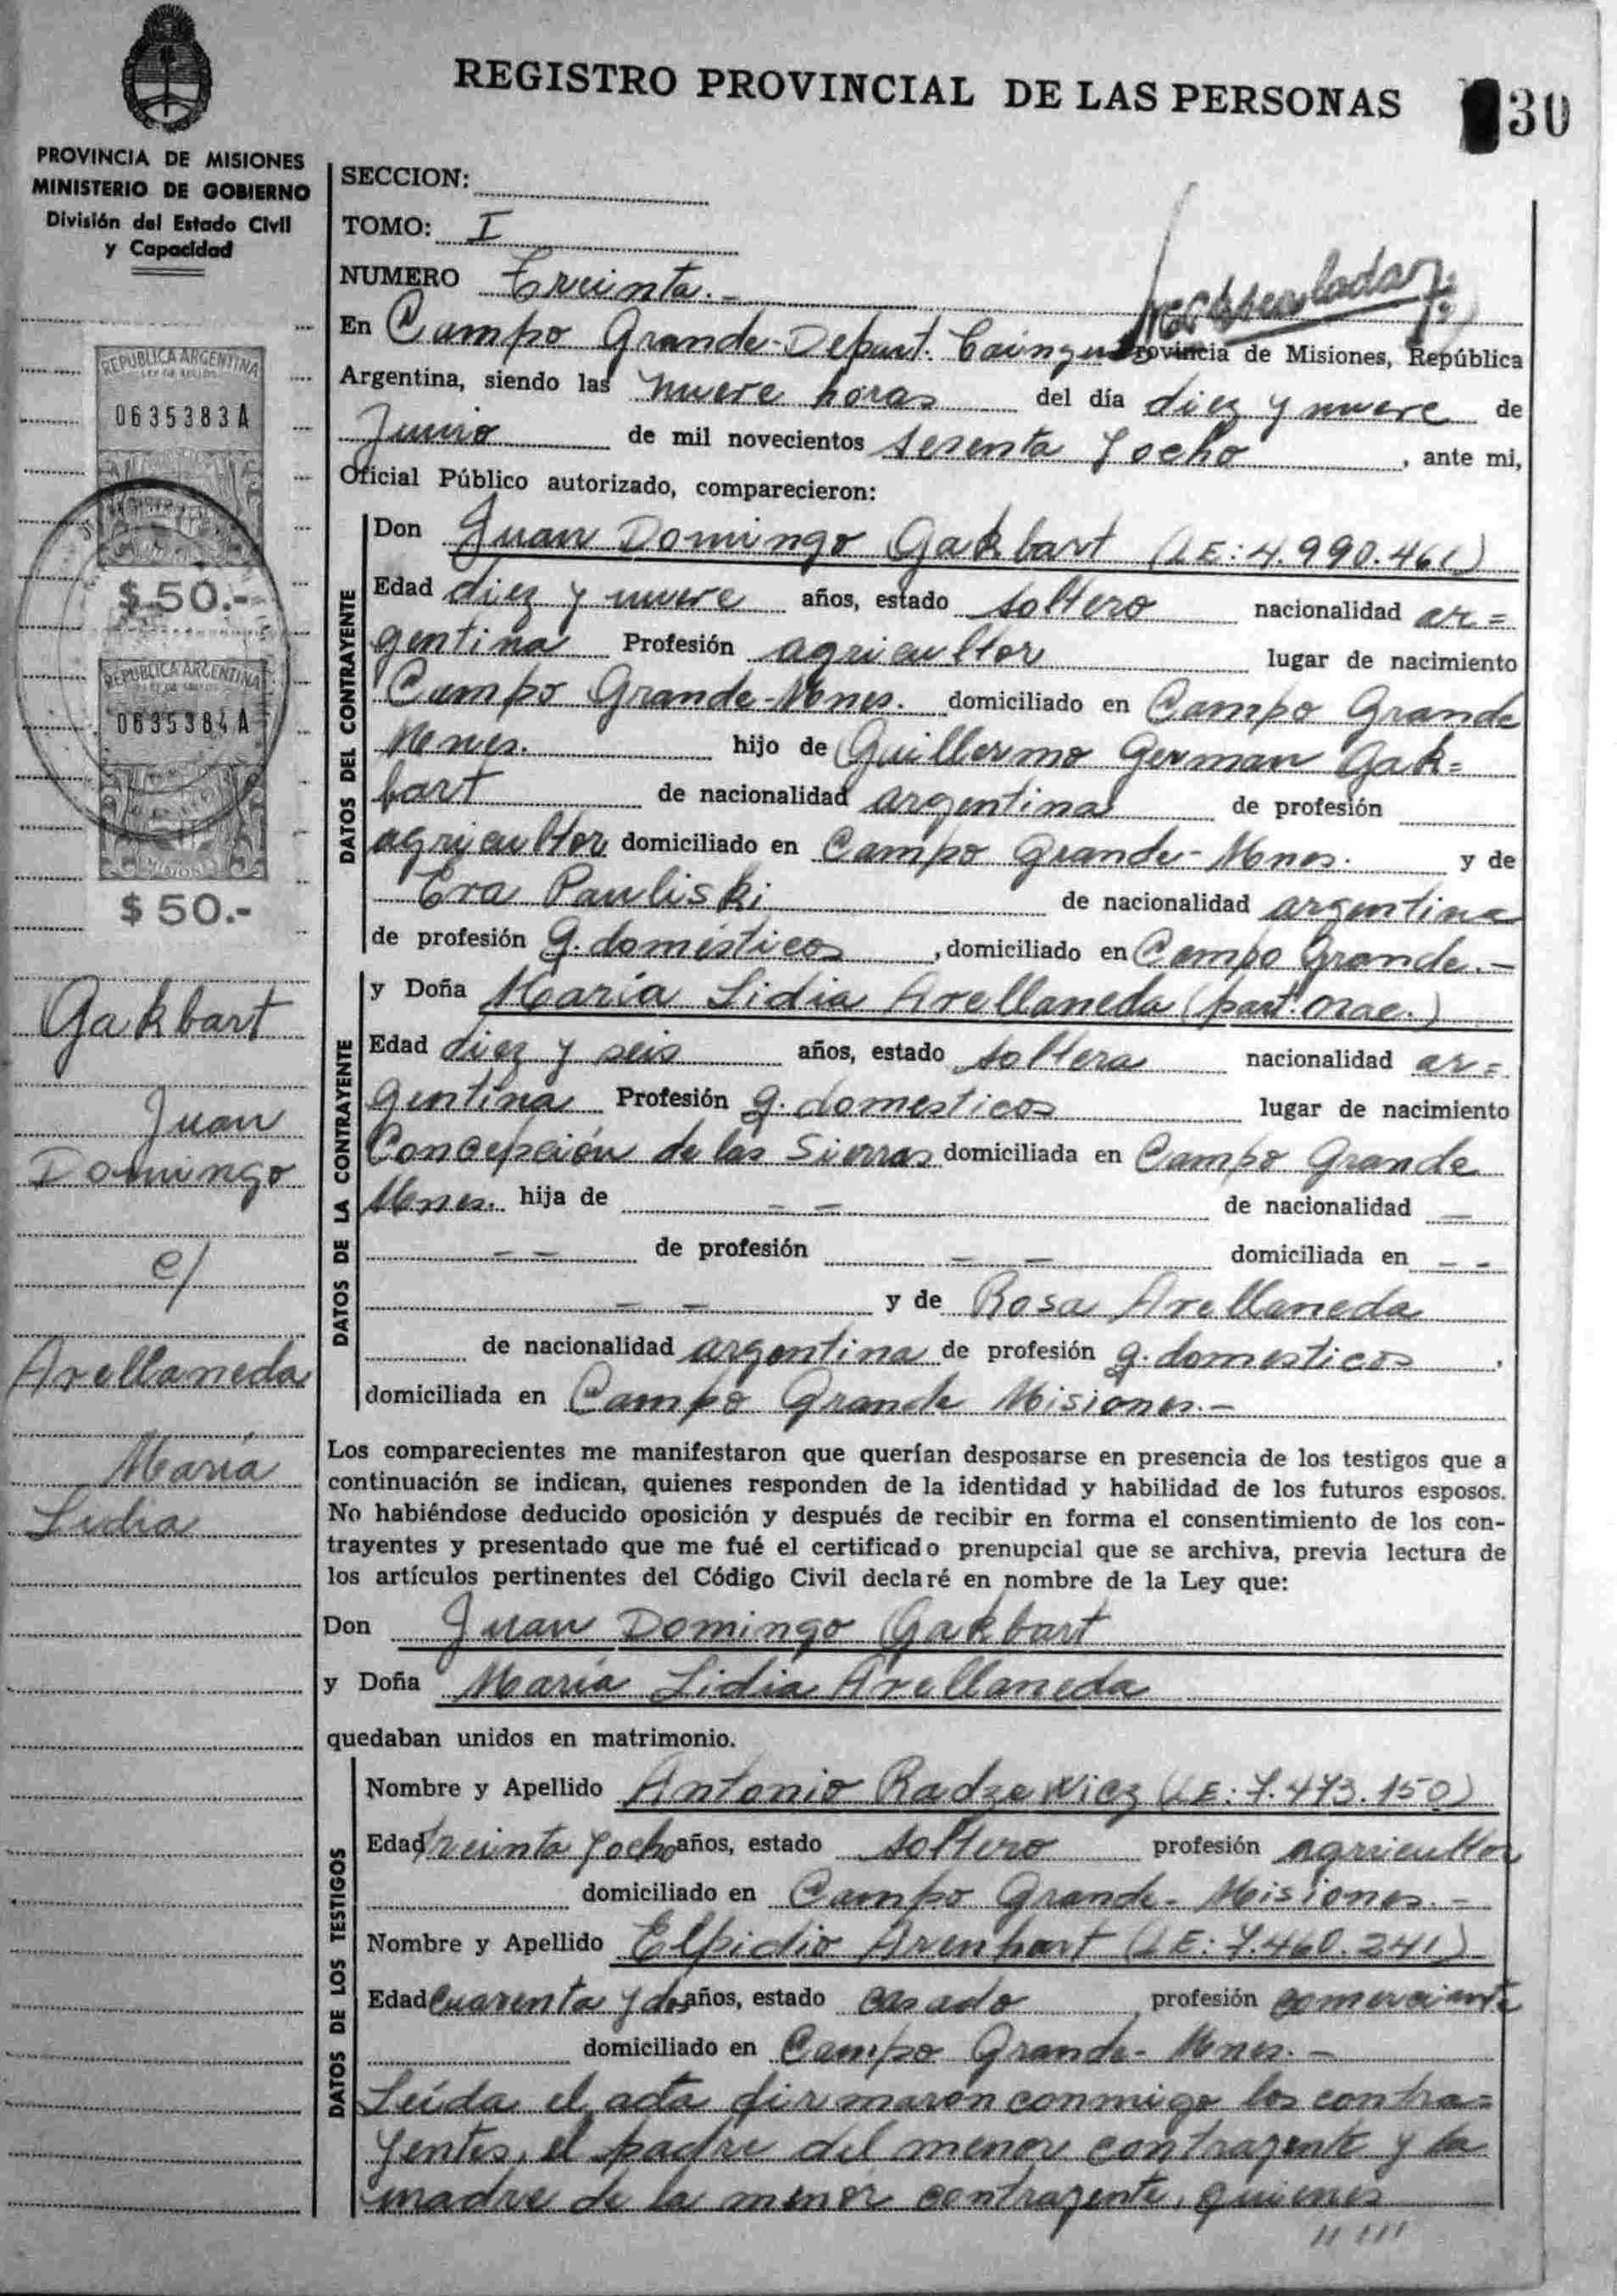 REGISTRO PROVINCIAL DE LAS PERSONAS
30
PROVINCIA DE MISIONES
MINISTERIO DE GOBIERNO
División del Estado Civil
y Capacidad
REPUBLICA ARGENTINA
LEY DE SELLOS
0635383A
$ 50.-
REPUBLICA ARGENTINA
0635384A
$ 50.-
Gakbart
Juan
Domingo
c/
Avellaneda
María
Lidia
SECCION:
TOMO: I
NUMERO Treinta.-
En Campo Grande-Depart. Cainguas Provincia de Misiones, República
Argentina, siendo las nueve horas del día diez y nueve de
Junio de mil novecientos sesenta y ocho, ante mi,
Oficial Público autorizado, comparecieron:
DATOS DEL CONTRAYENTE
Don Juan Domingo Gakbart (LE: 4.990.461)
Edad diez y nueve años, estado soltero nacionalidad ar=
gentina Profesión agricultor lugar de nacimiento
Campo Grande-Mnes. domiciliado en Campo Grande
Mnes. hijo de Guillermo German Gak=
bart de nacionalidad argentina de profesión
agricultor domiciliado en Campo Grande-Mnes. y de
Eva Pauliski de nacionalidad argentina
de profesión q. domésticos, domiciliado en Campo Grande.-
DATOS DE LA CONTRAYENTE
y Doña María Lidia Avellaneda (part. nac.)
Edad diez y seis años, estado soltera nacionalidad ar=
gentina Profesión q. domesticos lugar de nacimiento
Concepción de las Sierras domiciliada en Campo Grande
Mnes. hija de - - de nacionalidad -
- - de profesión - - domiciliada en - -
- - y de Rosa Avellaneda
de nacionalidad argentina de profesión q. domesticos,
domiciliada en Campo Grande Misiones.-
Los comparecientes me manifestaron que querían desposarse en presencia de los testigos que a
continuación se indican, quienes responden de la identidad y habilidad de los futuros esposos.
No habiéndose deducido oposición y después de recibir en forma el consentimiento de los con-
trayentes y presentado que me fué el certificado prenupcial que se archiva, previa lectura de
los artículos pertinentes del Código Civil declaré en nombre de la Ley que:
Don Juan Domingo Gakbart
y Doña María Lidia Avellaneda
quedaban unidos en matrimonio.
DATOS DE LOS TESTIGOS
Nombre y Apellido Antonio Radzewicz (LE: 7.473.150)
Edad treinta y ocho años, estado soltero profesión agricultor
domiciliado en Campo Grande- Misiones.-
Nombre y Apellido Elpidio Arenhart (LE: 7.460.241)
Edad cuarenta y dos años, estado casado profesión comerciante
domiciliado en Campo Grande- Mnes.-
Leída el acta firmaron conmigo los contra=
yentes, el padre del menor contrayente y la
madre de la menor contrayente, quienes